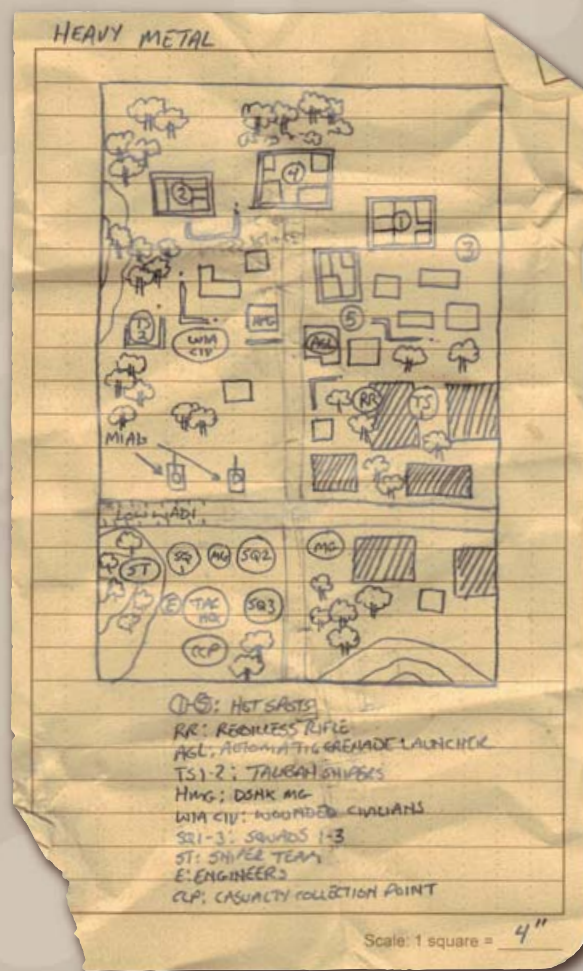 HEAVY METAL
4
2
1
3
HMG
5
TS
2
WIA
CIV
AGL
RR
TS
MIABs
LOW WADI
ST
SQ
1
MG
SQ2
MG
E
TAC
HQ
SQ3
CCP
1-5: HOT SPOTS
RR: RECOILLESS RIFLE
AGL: AUTOMATIC GRENADE LAUNCHER
TS1-2: TALIBAN SNIPERS
HMG: DSHK MG
WIA CIV: WOUNDED CIVILIANS
SQ1-3: SQUADS 1-3
ST: SNIPER TEAM
E: ENGINEERS
CCP: CASUALTY COLLECTION POINT
Scale: 1 square = 4"